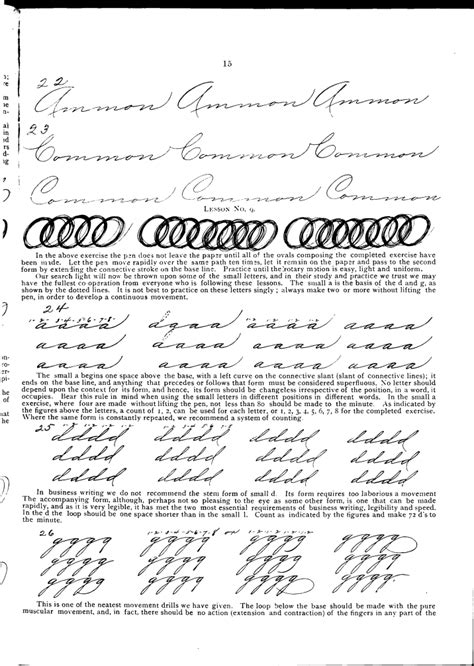 15
22
Ammon Ammon Ammon
23
Common Common Common
Common Common Common
LESSON NO. 9.
In the above exercise the pen does not leave the paper until all of the ovals composing the completed exercise have
been made. Let the pen move rapidly over the same path ten times, let it remain on the paper and pass to the second
form by extending the connective stroke on the base line. Practice until the rotary motion is easy, light and uniform.
Our search light will now be thrown upon some of the small letters, and in their study and practice we trust we may
have the fullest co operation from everyone who is following these lessons. The small a is the basis of the d and g, as
shown by the dotted lines. It is not best to practice on these letters singly; always make two or more without lifting the
pen, in order to develop a continuous movement.
24
aaaa aaaa aaaa aaaa
aaaa aaaa aaaa aaaa
aaaa aaaa aaaa aaaa
The small a begins one space above the base, with a left curve on the connective slant (slant of connective lines); it
ends on the base line, and anything that precedes or follows that form must be considered superfluous. No letter should
depend upon the context for its form, and hence, its form should be changeless irrespective of the position, in a word, it
occupies. Bear this rule in mind when using the small letters in different positions in different words. In the small a
exercise, made without lifting the pen, not less than 80 should be made to the minute. As indicated by
the figures above the letters, a count of 1, 2, can be used for each letter, or 1, 2, 3, 4, 5, 6, 7, 8 for the completed exercise.
Where the same form is constantly repeated, we recommend a system of counting.
25
dddd dddd dddd dddd
dddd dddd dddd dddd
dddd dddd dddd dddd
In business writing we do not recommend the stem form of small d. Its form requires too laborious a movement
The accompanying form, although, perhaps not so pleasing to the eye as some other form, is one that can be made
rapidly, and as it is very legible, it has met the two most essential requirements of business writing, legibility and speed.
In the d the loop should be one space shorter than in the small l. Count as indicated by the figures and make 72 d's to
the minute.
26
gggg gggg gggg gggg
gggg gggg gggg gggg
gggg gggg gggg gggg
This is one of the neatest movement drills we have given. The loop below the base should be made with the pure
muscular movement, and, in fact, there should be no action (extension and contraction) of the fingers in any part of the